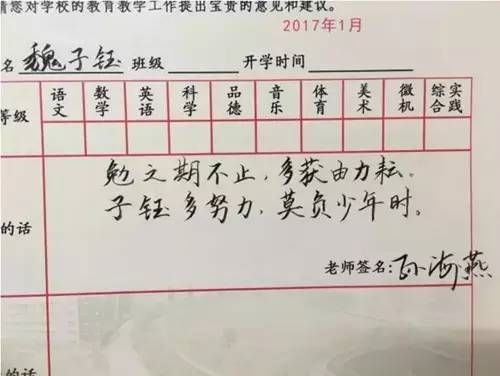 请您对学校的教育教学工作提出宝贵的意见和建议。
2017年1月
名 魏子钰 班级 开学时间
等级 语文 数学 英语 科学 品德 音乐 体育 美术 微机 综合实践
勉之期不止，多获由力耘。
的话 子钰多努力，莫负少年时。
老师签名：孙海燕
的话